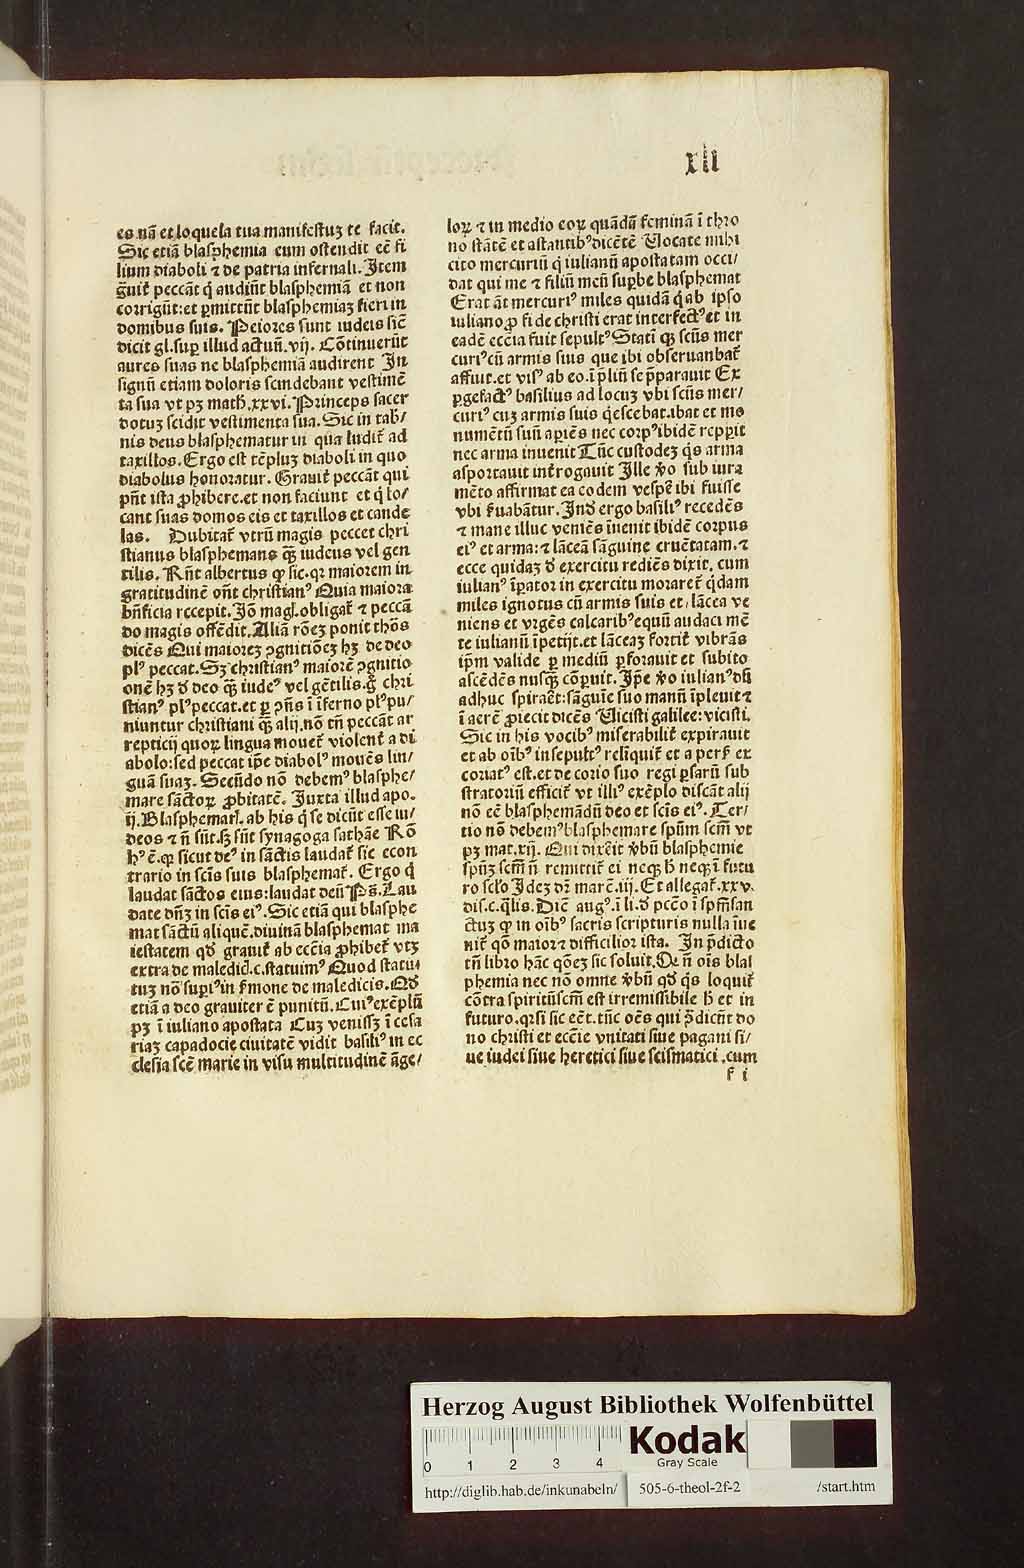 xli
es nā et loquela tua manifestuꝫ te facit.
Sic etiā blasphemia eum ostendit eē fi
lium diaboli ⁊ de patria infernali. Item
g̈uiť peccāt q̇ audiūt blasphemiā et non
corrigūt: et ꝑmittūt blasphemiaꝫ fieri in
domibus suis. Peiores sunt iudeis sic̄
dicit gl. suꝑ illud actuū. vij. Cōtinuerūt
aures suas ne blasphemiā audirent In
signū etiam doloris scindebant vestimē
ta sua vt pꝫ math̄. xxvi. Princeps sacer
dotuꝫ scidit vestimenta sua. Sic in tab̄/
nis deus blasphematur in qua ludiť ad
taxillos. Ergo est tēpluꝫ diaboli in quo
diabolus honoratur. Grauiť peccāt qui
pn̄t ista ꝓhibere. et non faciunt et q̇ lo/
cant suas domos eis et taxillos et cande
las. Dubitať vtrū magis peccet chri
stianus blasphemans qꝫ̄ iudeus vel gen
tilis. Rn̄t albertus ꝙ sic. qꝛ maiorem in
gratitudinē on̄t christianꝰ Quia maiora
bn̄ficia recepit. Iō magꝭ. obligať ⁊ peccā
do magis offēdit. Aliā rōeꝫ ponit thōs
dicēs Qui maioreꝫ ꝯgnitiōeꝫ hꝫ de deo
plꝰ peccat. Sꝫ christianꝰ maiorē ꝯgnitio
onē hꝫ d̄ deo qꝫ̄ iudeꝰ vel gētilis. g̊ chri
stianꝰ plꝰ peccat. et ꝑ ꝯn̄s ī īferno plꝰ pu/
niuntur christiani qꝫ̄ alij. nō tn̄ peccāt ar
repticij quoꝝ lingua moueť violenť a di
abolo: sed peccat ip̄e diabolꝰ mouēs lin/
guā suaꝫ. Secūdo nō debemꝰ blasphe/
mare sāctoꝝ ꝓbitatē. Iuxta illud apo.
ij. Blasphemarꝭ. ab his q̇ se dicūt esse iu/
deos ⁊ n̄ sūt. sꝫ sūt synagoga sathāe Rō
hꝰ ē. ꝙ sicut deꝰ in sāctis laudať sic econ
trario in scīs suis blasphemať. Ergo q̇
laudat sāctos eius: laudat deū Pṡ. Lau
date dn̄ꝫ in scīs eiꝰ. Sic etiā qui blasphe
mat sāctū aliquē. diuinā blasphemat ma
iestatem qd̄ grauiť ab ecc̄ia ꝓhibeť vtꝫ
extra de maledic̄. c. statuimꝰ Quod statu
tuꝫ nō suꝑiꝰ in ẜmone de maledicis. Qd̄
etiā a deo grauiter ē punitū. Cuiꝰ exēplū
pꝫ ī iuliano apostata Cuꝫ venissꝫ ī cesa
riaꝫ capadocie ciuitatē vidit basiliꝰ in ec
clesia scē marie in visu multitudinē āge/
loꝝ ⁊ in medio eoꝝ quādā feminā ī thro
no stātē et astantibꝰ dicētē Uocate mihi
cito mercuriū q̇ iulianū apostatam occi/
dat qui me ⁊ filiū meū suꝑbe blasphemat
Erat āt mercuriꝰ miles quidā q̇ ab ipso
iuliano ꝓ fide christi erat interfectꝰ et in
eadē ecc̄ia fuit sepultꝰ Statī qꝫ scūs mer
curiꝰ cū armis suis que ibi obseruanbať
affuit. et visꝰ ab eo. ī p̄liū se p̄parauit Ex
ꝑgefactꝰ basilius ad locuꝫ vbi scūs mer/
curiꝰ cuꝫ armis suis q̇escebat. ibat et mo
numētū suū aꝑiēs nec corpꝰ ibidē repꝑit
nec arma inuenit Tūc custodeꝫ q̇s arma
asportauit inťrogauit Ille v̊o sub iura
mēto affirmat ea eodem vesꝑe ibi fuisse
vbi ẜuabātur. Ind̄ ergo basiliꝰ recedēs
⁊ mane illuc veniēs īuenit ibidē corpus
eiꝰ et arma: ⁊ lāceā sāguine cruētatam. ⁊
ecce quidaꝫ d̄ exercitu rediēs dixit. cum
iulianꝰ īꝑator in exercitu morareť q̇dam
miles ignotus cū armis suis et. lācea ve
niens et vrgēs calcaribꝰ equū audaci mē
te iulianū īpetijt. et lāceaꝫ fortiť vibrās
ip̄m valide ꝑ mediū ꝑforauit et subito
ascēdēs nusqꝫ̄ cōꝑuit. Ip̄e v̊o iulianꝰ dū
adhuc spiraēt: sāguīe suo manū īpleuit ⁊
ī aerē ꝓiecit dicēs Uicisti galilee: vicisti.
Sic in his vocibꝰ miserabiliť expirauit
et ab oībꝰ insepultꝰ reliquiť et a perẜ ex
coriatꝰ est. et de corio suo regi ꝑsarū sub
stratoriū efficiť vt illiꝰ exēplo discāt alij
nō eē blasphemādū deo et scīs eiꝰ. Ter/
tio nō debemꝰ blasphemare spūm scm̄ vt
pꝫ mat. xij. Qui dixeīt v̊bū blasphemie
spūꝫ scm̄ n̄ remittiť ei neqꝫ h̄ neqꝫ ī futu
ro sc̄lo Ideꝫ dꝛ marc̄. iij. Et allegať. xxv.
dis. c. q̄lis. Dic̄ augꝰ. ī li. d̄ pccō ī spm̄san
ctuꝫ ꝙ in oībꝰ sacris scripturis nulla īue
niť qō maior ⁊ difficilior ista. In p̄dicto
tn̄ libro hāc qōeꝫ sic soluit. Qr̄ n̄ oīs blas
phemia nec nō omne v̊bū qd̄ q̇s loquiť
cōtra spiritūscm̄ est irremissibile h̄ et in
futuro. qꝛ si sic eēt. tūc oēs qui p̄dicūt do
no christi et ecc̄ie vnitati siue pagani si/
ue iudei siue heretici siue scismatici. cum
f i
Herzog August Bibliothek Wolfenbüttel
0 1 2 3 4
Kodak
Gray Scale
http://diglib.hab.de/inkunabeln/ 505-6-theol-2f-2 /start.htm